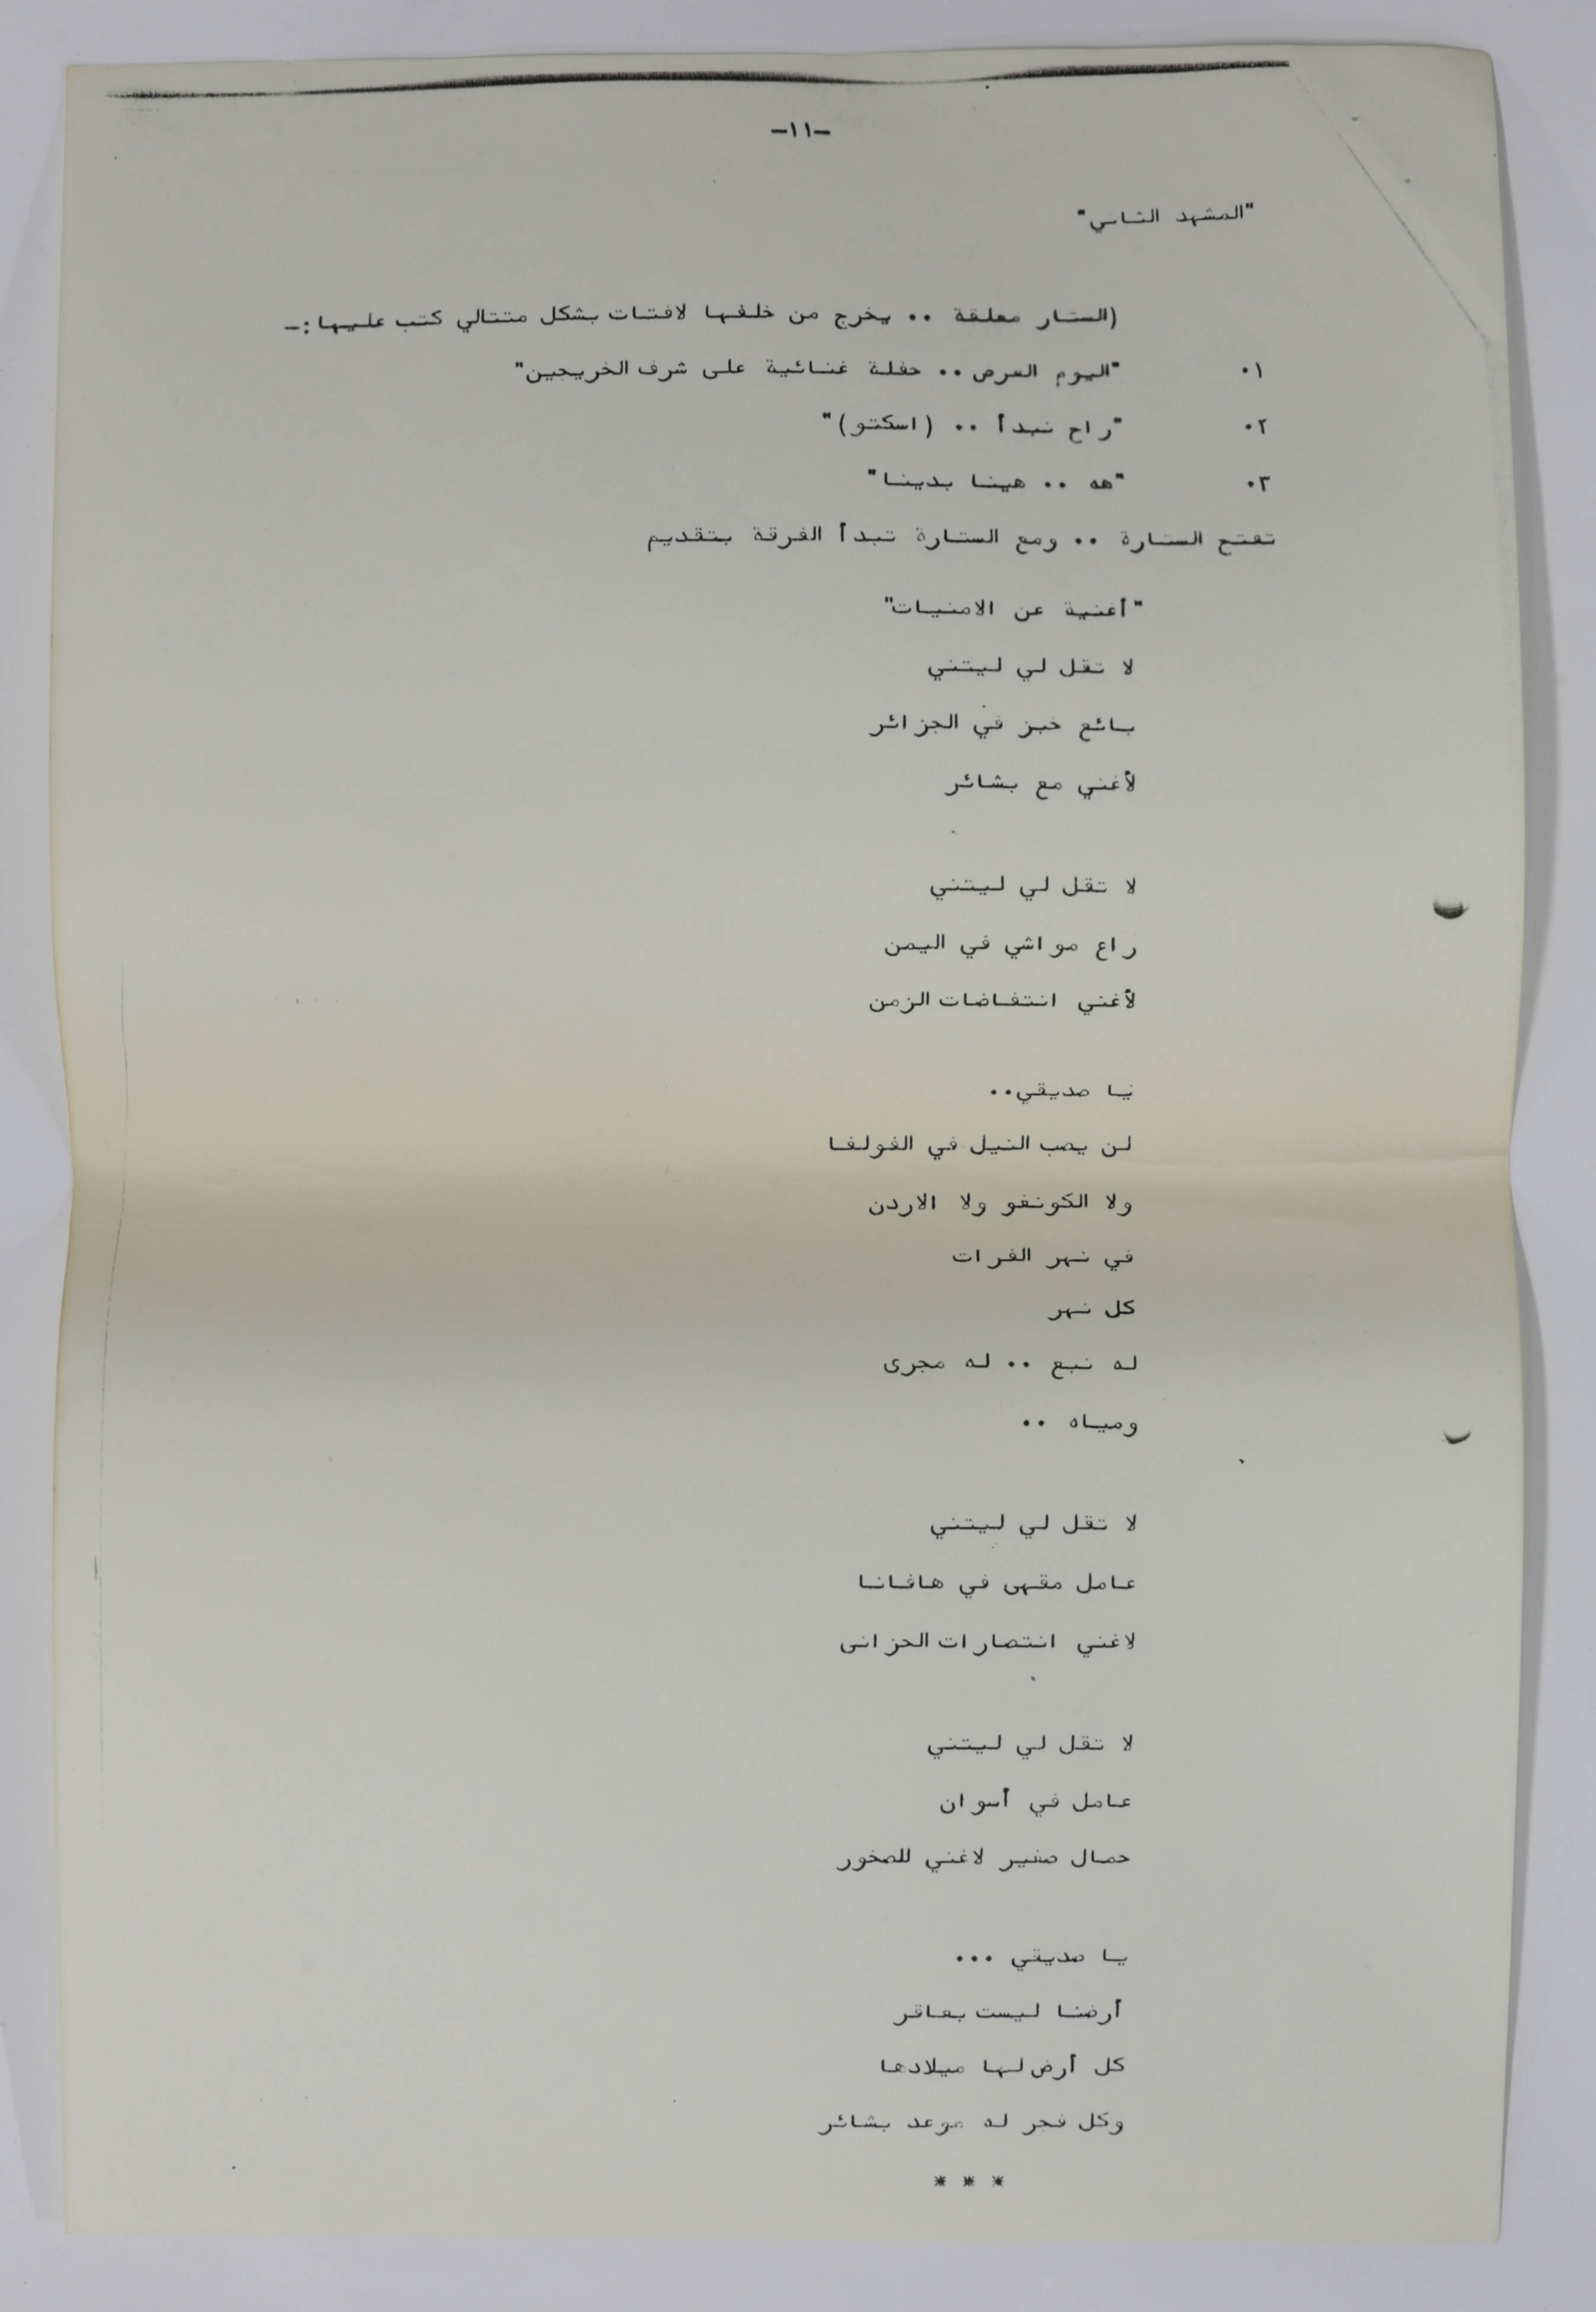 -١١-
"المشهد الثاني"
(الستار مغلقة .. يخرج من خلفها لافتات بشكل متتالي كتب عليها:-
٠١ "اليوم العرض .. حفلة غنائية على شرف الخريجين"
٠٢ "راح نبدأ .. (اسكتو)"
٠٣ "هه .. هينا بدينا"
تفتح الستارة .. ومع الستارة تبدأ الفرقة بتقديم
"أغنية عن الامنيات"
لا تقل لي ليتني
بائع خبز في الجزائر
لأغني مع بشائر
لا تقل لي ليتني
راع مواشي في اليمن
لأغني انتفاضات الزمن
يا صديقي..
لن يصب النيل في الفولغا
ولا الكونغو ولا الاردن
في نهر الفرات
كل نهر
له نبع .. له مجرى
ومياه ..
لا تقل لي ليتني
عامل مقهى في هافانا
لاغني انتصارات الحزانى
لا تقل لي ليتني
عامل في أسوان
حمال صغير لاغني للصخور
يا صديقي ...
أرضنا ليست بعاقر
كل أرض لها ميلادها
وكل فجر له موعد بشائر
* * *